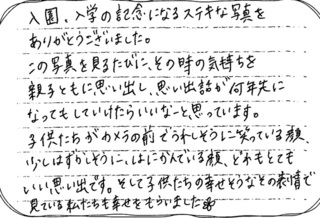 入園、入学の記念になるステキな写真を
ありがとうございました。
この写真を見るたびに、その時の気持ちを
親子ともに思い出し、思い出話が何年先に
なってもしていけたらいいなーと思っています。
子供たちがカメラの前でうれしそうに笑っている顔、
少しはずかしそうに、はにかんでいる顔、どれもとても
いい思い出です。そして子供たちの幸せそうなその表情で
見ている私たちも幸せをもらいました